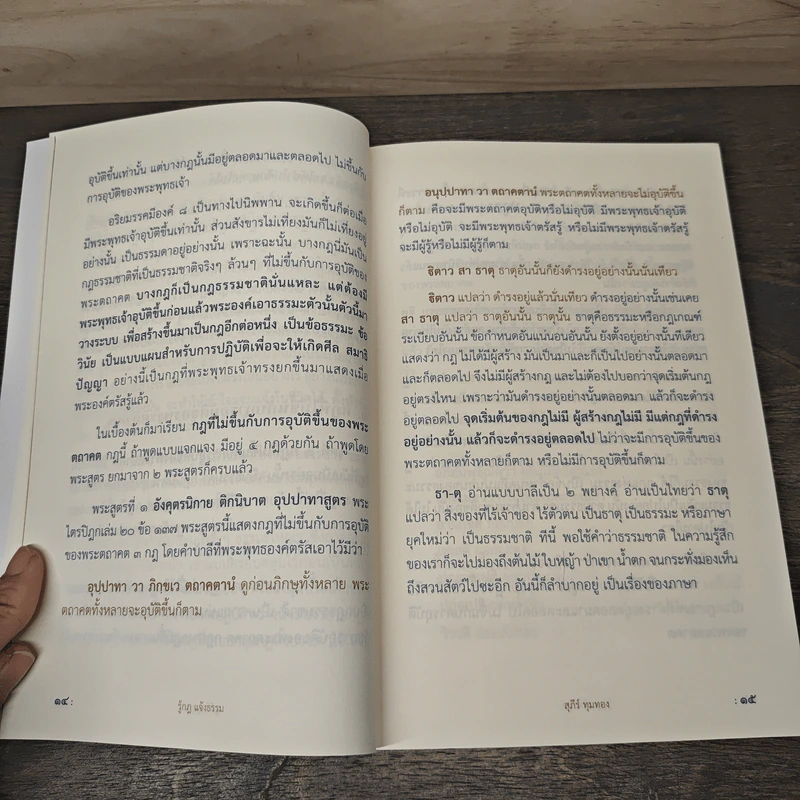 อุบัติขึ้นเท่านั้น แต่บางกฎนั้นมีอยู่ตลอดมาและตลอดไป ไม่ขึ้นกับ
การอุบัติของพระพุทธเจ้า
อริยมรรคมีองค์ ๘ เป็นทางไปนิพพาน จะเกิดขึ้นก็ต่อเมื่อ
มีพระพุทธเจ้าอุบัติขึ้นเท่านั้น ส่วนสังขารไม่เที่ยงมันก็ไม่เที่ยงอยู่
อย่างนั้น เป็นธรรมดาอยู่อย่างนั้น เพราะฉะนั้น บางกฎนี่มันเป็น
กฎธรรมชาติที่เป็นธรรมชาติจริงๆ ล้วนๆ ที่ไม่ขึ้นกับการอุบัติของ
พระตถาคต บางกฎก็เป็นกฎธรรมชาตินั่นแหละ แต่ต้องมี
พระพุทธเจ้าอุบัติขึ้นก่อนแล้วพระองค์เอาธรรมะตัวนั้นตัวนี้มา
วางระบบ เพื่อสร้างขึ้นมาเป็นกฎอีกต่อหนึ่ง เป็นข้อธรรมะ ข้อ
วินัย เป็นแบบแผนสำหรับการปฏิบัติเพื่อจะให้เกิดศีล สมาธิ
ปัญญา อย่างนี้เป็นกฎที่พระพุทธเจ้าทรงยกขึ้นมาแสดงเมื่อ
พระองค์ตรัสรู้แล้ว
ในเบื้องต้นก็มาเรียน กฎที่ไม่ขึ้นกับการอุบัติขึ้นของพระ
ตถาคต กฎนี้ ถ้าพูดแบบแจกแจง มีอยู่ ๔ กฎด้วยกัน ถ้าพูดโดย
พระสูตร ยกมาจาก ๒ พระสูตรก็ครบแล้ว
พระสูตรที่ ๑ อังคุตรนิกาย ติกนิบาต อุปปาทาสูตร พระ
ไตรปิฎกเล่ม ๒๐ ข้อ ๑๓๗ พระสูตรนี้แสดงกฎที่ไม่ขึ้นกับการอุบัติ
ของพระตถาคต ๓ กฎ โดยคำบาลีที่พระพุทธองค์ตรัสเอาไว้มีว่า
อุปฺปาทา วา ภิกฺขเว ตถาคตานํ ดูก่อนภิกษุทั้งหลาย พระ
ตถาคตทั้งหลายจะอุบัติขึ้นก็ตาม
๑๔ :
รู้กฎ แจ้งธรรม
อนุปฺปาทา วา ตถาคตานํ พระตถาคตทั้งหลายจะไม่อุบัติขึ้น
ก็ตาม คือจะมีพระตถาคตอุบัติหรือไม่อุบัติ มีพระพุทธเจ้าอุบัติ
หรือไม่อุบัติ จะมีพระพุทธเจ้าตรัสรู้ หรือไม่มีพระพุทธเจ้าตรัสรู้
จะมีผู้รู้หรือไม่มีผู้รู้ก็ตาม
ธิตาว สา ธาตุ ธาตุอันนั้นก็ยังดำรงอยู่อย่างนั้นนั่นเทียว
ธิตาว แปลว่า ดำรงอยู่แล้วนั่นเทียว ดำรงอยู่อย่างนั้นเช่นเคย
สา ธาตุ แปลว่า ธาตุอันนั้น ธาตุนั้น ธาตุคือธรรมะหรือกฎเกณฑ์
ระเบียบอันนั้น ข้อกำหนดอันแน่นอนอันนั้น ยังตั้งอยู่อย่างนั้นทีเดียว
แสดงว่า กฎ ไม่ได้มีผู้สร้าง มันเป็นมาและก็เป็นไปอย่างนั้นตลอดมา
และก็ตลอดไป จึงไม่มีผู้สร้างกฎ และไม่ต้องไปบอกว่าจุดเริ่มต้นกฎ
อยู่ตรงไหน เพราะว่ามันดำรงอยู่อย่างนั้นตลอดมา แล้วก็จะดำรง
อยู่ตลอดไป จุดเริ่มต้นของกฎไม่มี ผู้สร้างกฎไม่มี มีแต่กฎที่ดำรง
อยู่อย่างนั้น แล้วก็จะดำรงอยู่ตลอดไป ไม่ว่าจะมีการอุบัติขึ้นของ
พระตถาคตทั้งหลายก็ตาม หรือไม่มีการอุบัติขึ้นก็ตาม
ธา-ตุ อ่านแบบบาลีเป็น ๒ พยางค์ อ่านเป็นไทยว่า ธาตุ
แปลว่า สิ่งของที่ไร้เจ้าของ ไร้ตัวตน เป็นธาตุ เป็นธรรมะ หรือภาษา
ยุคใหม่ว่า เป็นธรรมชาติ ทีนี้ พอใช้คำว่าธรรมชาติ ในความรู้สึก
ของเราก็จะไปมองถึงต้นไม้ ใบหญ้า ป่าเขา น้ำตก จนกระทั่งมองเห็น
ถึงสวนสัตว์ไปซะอีก อันนี้ก็ลำบากอยู่ เป็นเรื่องของภาษา
สุภีร์ ทุมทอง
: ๑๕